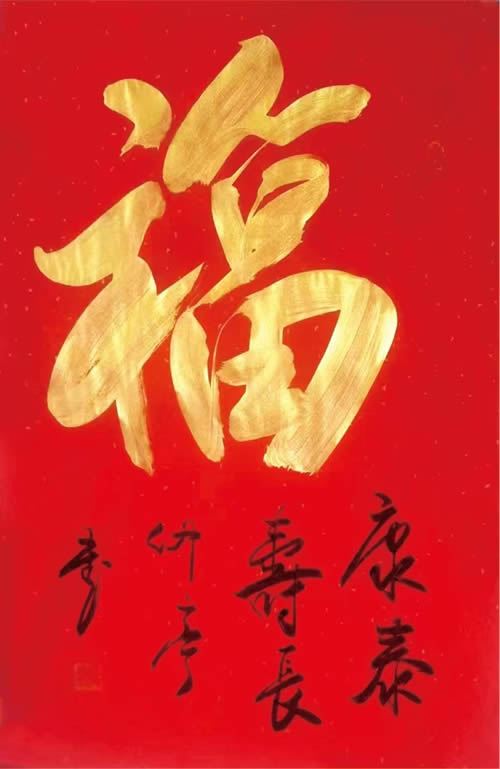 福
康泰
壽長
竹亭
書